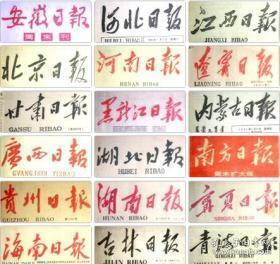 安徽日報
周末刊
河北日報
HEBEI RIBAO
江西日报
JIANGXI RIBAO
北京日報
河南日報
HENAN RIBAO
遼寧日報
LIAONING RIBAO
甘肃日報
GANSU RIBAO
黑龍江日報
内蒙古日报
廣西日報
GVANGJSIH YIZBAU
湖北日報
HUBEI RIBAO
南方日报
周末扩大版
貴州日報
GUIZHOU RIBAO
湖南日報
HUNAN RIBAO
寧夏日报
NINGXIA RIBAO
海南日报
吉林日报
JILIN RIBAO
青海日報